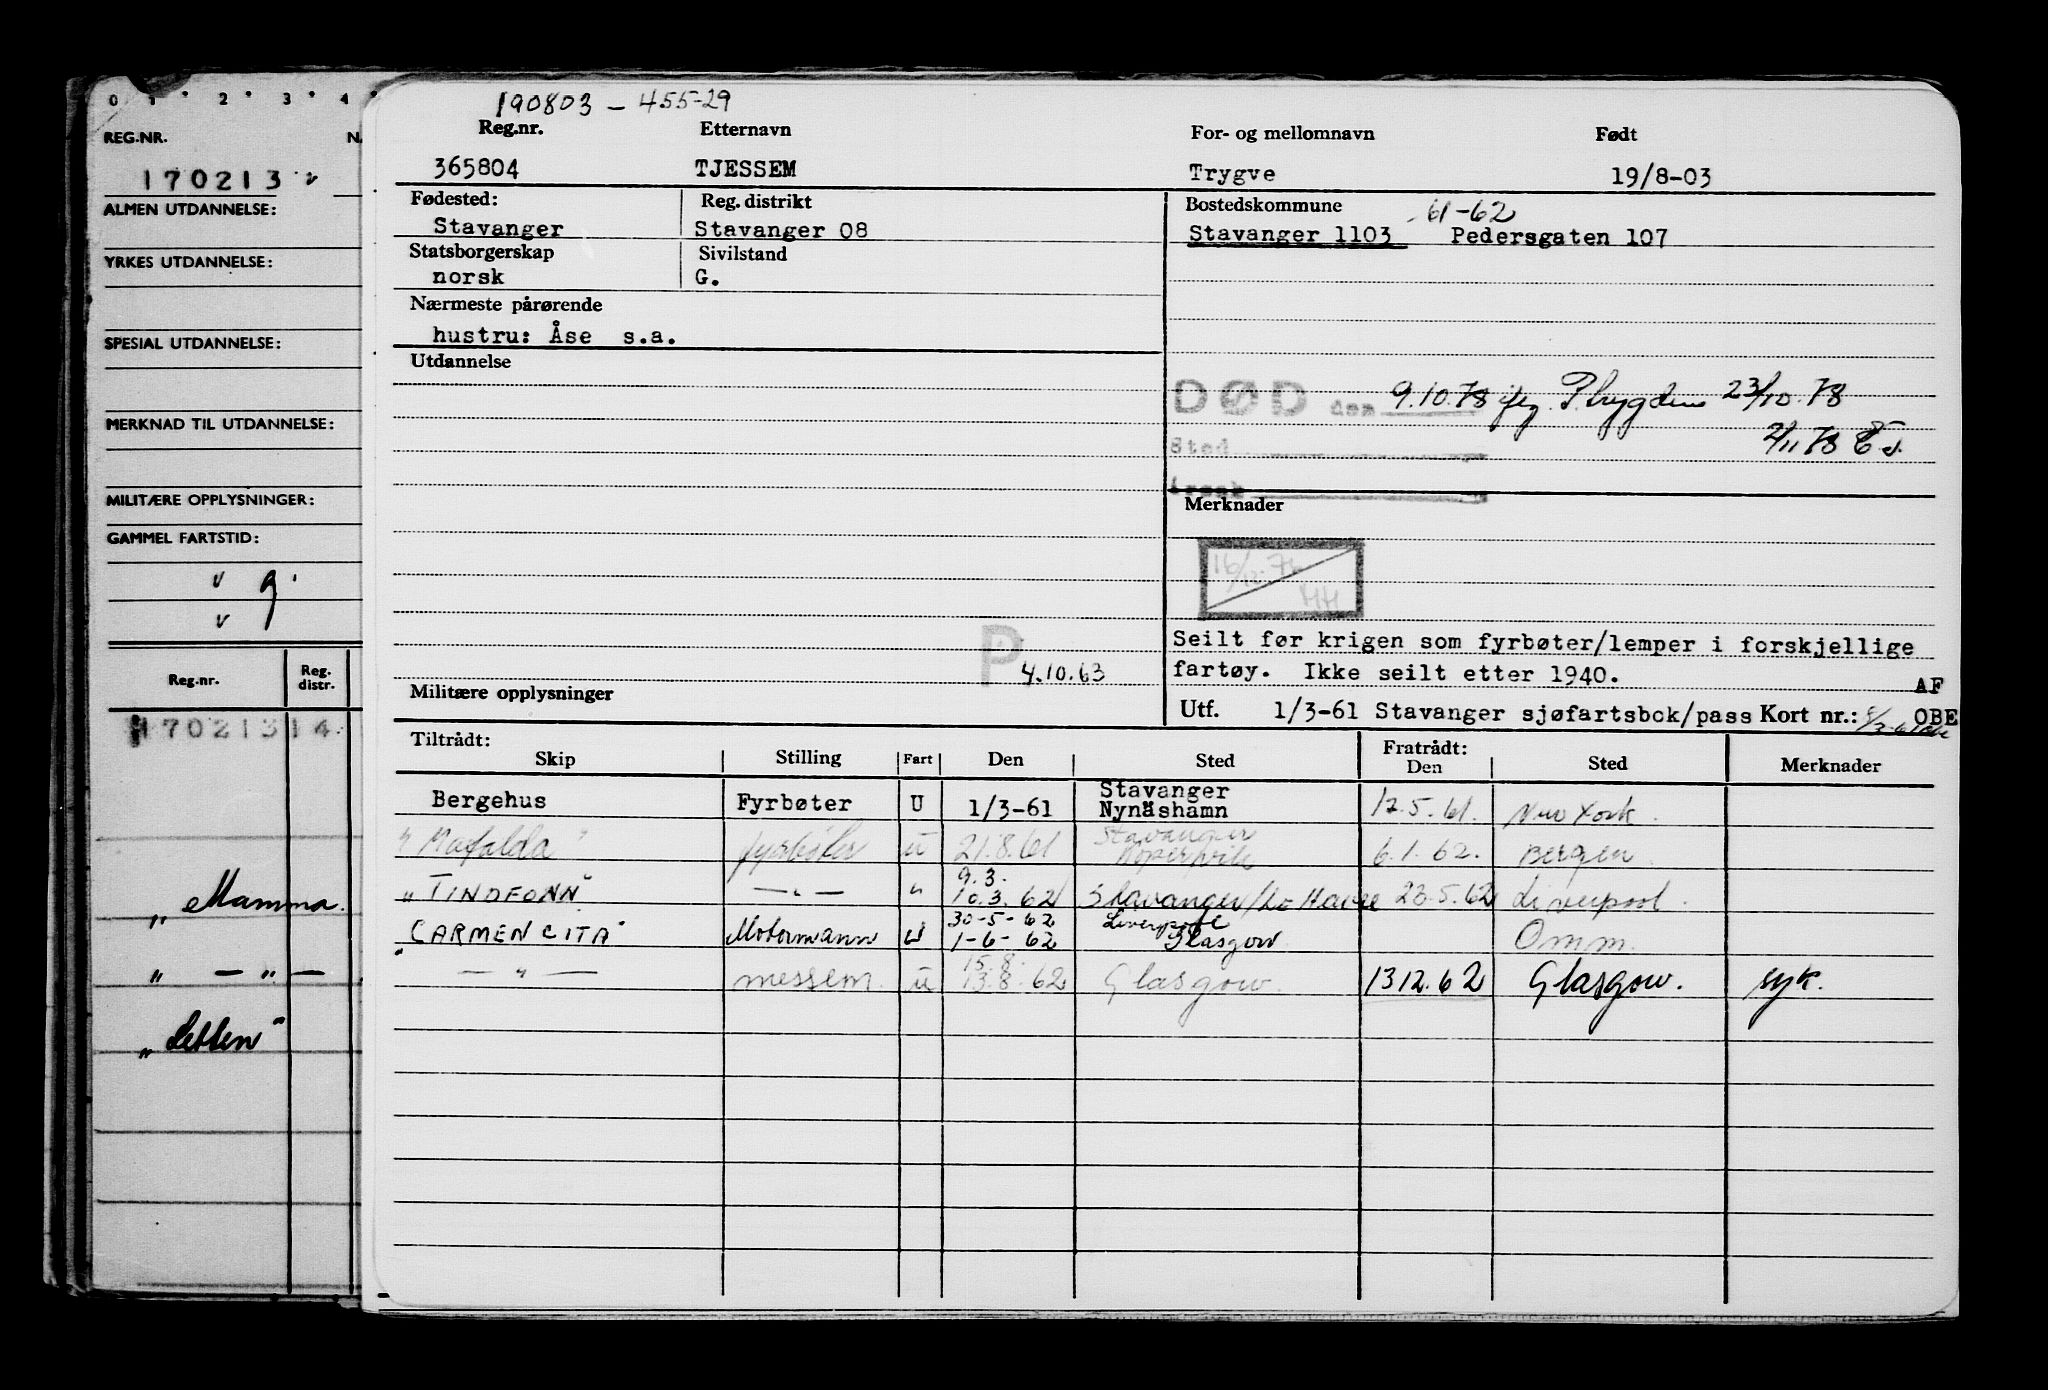 0 1 2 3 4
REG.NR.
170213
ALMEN UTDANNELSE:
YRKES UTDANNELSE:
SPESIAL UTDANNELSE:
MERKNAD TIL UTDANNELSE:
MILITÆRE OPPLYSNINGER:
GAMMEL FARTSTID:
v 9
v
Reg.nr. Reg. distr.
170213 14
„Mamma
„ — „ —
„Letten"
190803 - 455-29
Reg.nr. Etternavn For- og mellomnavn Født
365804 TJESSEM Trygve 19/8-03
Fødested: Reg. distrikt Bostedskommune 61-62
Stavanger Stavanger 08 Stavanger 1103 Pedersgaten 107
Statsborgerskap Sivilstand
norsk G.
Nærmeste pårørende
hustru: Åse s.a.
Utdannelse
DØD den 9.10.78 iflg. P.trygden 23/10.78
Sted 2/11 78
Merknader
16/12.76 HH
Seilt før krigen som fyrbøter/lemper i forskjellige
fartøy. Ikke seilt etter 1940. AF
P 4.10.63
Militære opplysninger
Utf. 1/3-61 Stavanger sjøfartsbok/pass Kort nr.: OBE
Tiltrådt: Fratrådt:
Skip Stilling Fart Den Sted Den Sted Merknader
Bergehus Fyrbøter U 1/3-61 Stavanger Nynäshamn 12.5.61. New York.
"Mafalda" fyrbøter u 21.8.61 Stavanger Kopervik 6.1.62. Bergen.
"TINDFONN" — " — " 9.3. 10.3.62 Stavanger/Le Havre 23.5.62 Liverpool.
"CARMENCITA" Motormann U 30-5-62 1-6-62 Liverpool Glasgow Omm.
— " — messem. u 15.8. 13.8.62 Glasgow. 13.12.62 Glasgow. syk.